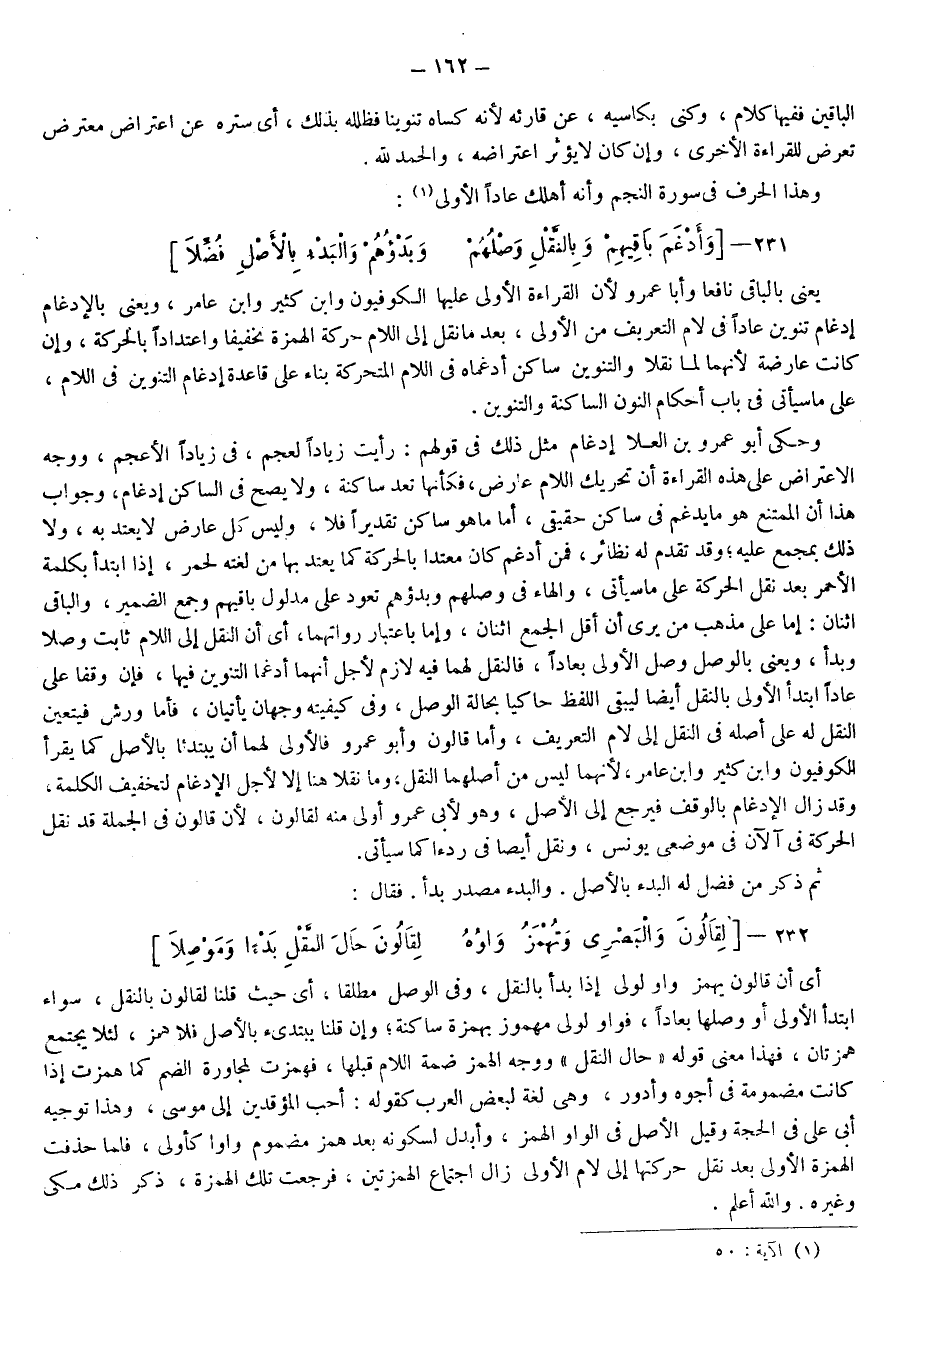 — ١٦٢ —
الباقين ففيها كلام ، وكنى بكاسيه ، عن قارئه لأنه كساه تنوينا فظلله بذلك ، أى ستره عن اعتراض معترض
تعرض للقراءة الأخرى ، وإن كان لايؤثر اعتراضه ، والحمد لله .
وهذا الحرف فى سورة النجم وأنه أهلك عاداً الأولى (١) :
٢٣١— [ وَأَدْغَمَ بَاقِيهِمْ وَبِالنَّقْلِ وَصْلُهُمْ وَبَدْؤُهُمْ وَالْبَدْءُ بِالْأَصْلِ فُضِّلَا ]
يعنى بالباقى نافعا وأبا عمرو لأن القراءة الأولى عليها الكوفيون وابن كثير وابن عامر ، ويعنى بالإدغام
إدغام تنوين عاداً فى لام التعريف من الأولى ، بعد مانقل إلى اللام حركة الهمزة تخفيفا واعتداداً بالحركة ، وإن
كانت عارضة لأنهما لما نقلا والتنوين ساكن أدغماه فى اللام المتحركة بناء على قاعدة إدغام التنوين فى اللام ،
على ماسيأتى فى باب أحكام النون الساكنة والتنوين .
وحكى أبو عمرو بن العلا إدغام مثل ذلك فى قولهم : رأيت زياداً لعجم ، فى زياداً الأعجم ، ووجه
الاعتراض على هذه القراءة أن تحريك اللام عارض، فكأنها تعد ساكنة ، ولا يصح فى الساكن إدغام، وجواب
هذا أن الممتنع هو مايدغم فى ساكن حقيقى ، أما ماهو ساكن تقديراً فلا ، وليس كل عارض لايعتد به ، ولا
ذلك بمجمع عليه؛ وقد تقدم له نظائر ، فمن أدغم كان معتدا بالحركة كما يعتد بها من لغته لحمر ، إذا ابتدأ بكلمة
الأحمر بعد نقل الحركة على ماسيأتى ، والهاء فى وصلهم وبدؤهم تعود على مدلول باقيهم وجمع الضمير ، والباقى
اثنان : إما على مذهب من يرى أن أقل الجمع اثنان ، وإما باعتبار رواتهما، أى أن النقل إلى اللام ثابت وصلا
وبدأ ، ويعنى بالوصل وصل الأولى بعاداً ، فالنقل لهما فيه لازم لأجل أنهما أدغما التنوين فيها ، فإن وقفا على
عاداً ابتدأ الأولى بالنقل أيضا ليبقى اللفظ حاكيا بحالة الوصل ، وفى كيفيته وجهان يأتيان ، فأما ورش فيتعين
النقل له على أصله فى النقل إلى لام التعريف ، وأما قالون وأبو عمرو فالأولى لهما أن يبتدئا بالأصل كما يقرأ
الكوفيون وابن كثير وابن عامر، لأنهما ليس من أصلهما النقل؛ وما نقلا هنا إلا لأجل الإدغام لتخفيف الكلمة،
وقد زال الإدغام بالوقف فيرجع إلى الأصل ، وهو لأبى عمرو أولى منه لقالون ، لأن قالون فى الجملة قد نقل
الحركة فى آلآن فى موضعى يونس ، ونقل أيضا فى ردءا كما سيأتى.
ثم ذكر من فضل له البدء بالأصل . والبدء مصدر بدأ . فقال :
٢٣٢ — [ لِقَالُونَ وَالْبَصْرِى وَتُهْمَزُ وَاوُهُ لِقَالُونَ حَالَ النَّقْلِ بَدْءًا وَمَوْصِلاَ ]
أى أن قالون يهمز واو لولى إذا بدأ بالنقل ، وفى الوصل مطلقا ، أى حيث قلنا لقالون بالنقل ، سواء
ابتدأ الأولى أو وصلها بعاداً ، فواو لولى مهموز بهمزة ساكنة؛ وإن قلنا يبتدىء بالأصل فلا همز ، لئلا يجتمع
همزتان ، فهذا معنى قوله « حال النقل » ووجه الهمز ضمة اللام قبلها ، فهمزت لمجاورة الضم كما همزت إذا
كانت مضمومة فى أجوه وأدور ، وهى لغة لبعض العرب كقوله : أحب المؤقدين إلى موسى ، وهذا توجيه
أبى على فى الحجة وقيل الأصل فى الواو الهمز ، وأبدل لسكونه بعد همز مضموم واوا كأولى ، فلما حذفت
الهمزة الأولى بعد نقل حركتها إلى لام الأولى زال اجتماع الهمزتين ، فرجعت تلك الهمزة ، ذكر ذلك مكى
وغيره . والله أعلم .
(١) الآية : ٥٠